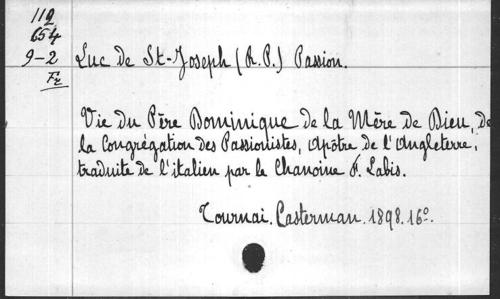 112
654
9-2
Fr
Luc de St-Joseph (R.P.) Passion.
Vie du Père Dominique de la Mère de Dieu, de
la Congrégation des Passionistes, apôtre de l'Angleterre;
traduite de l'italien par le Chanoine F. Labis.
Tournai. Casterman. 1898. 16º.